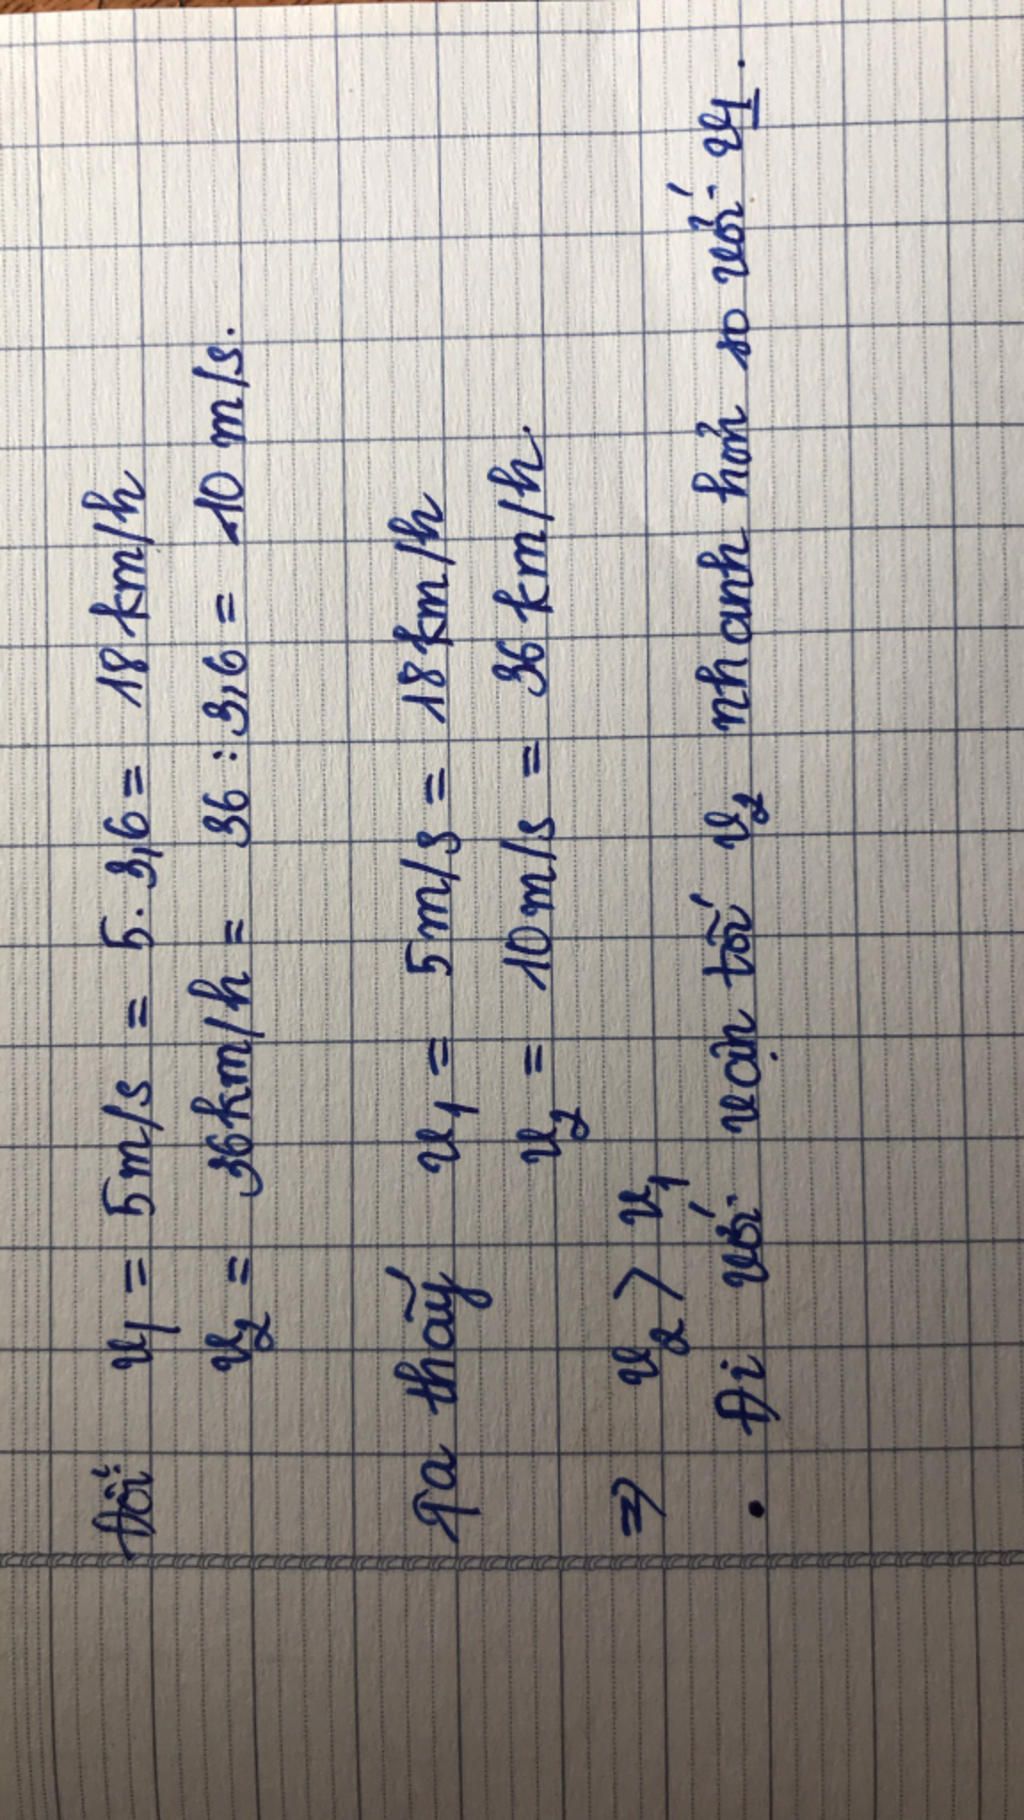 Đổi v₁ = 5m/s = 5. 3,6 = 18 km/h
v₂ = 36km/h = 36 : 3,6 = 10 m/s.
Ta thấy v₁ = 5m/s = 18km/h
v₂ = 10m/s = 36 km/h.
⇒ v₂ > v₁
• Đi với vận tốc v₂ nhanh hơn so với v₁.